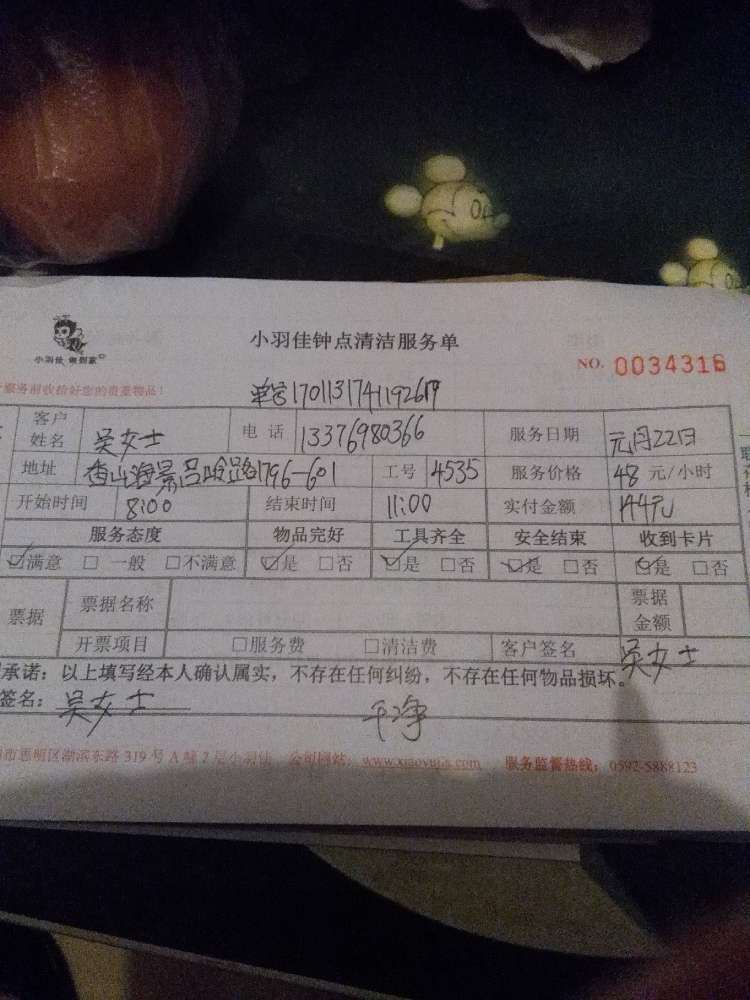 小羽佳 做到家
小羽佳钟点清洁服务单
NO. 0034316
服务前收拾好您的贵重物品!
单号17011317411926
客户姓名 吴女士 电话 13376980366 服务日期 元月22日
地址 香山海景吕岭路1796-601 工号 4535 服务价格 48 元/小时
开始时间 8:00 结束时间 11:00 实付金额 144元
服务态度 物品完好 工具齐全 安全结束 收到卡片
☑满意 □一般 □不满意 ☑是 □否 ☑是 □否 ☑是 □否 ☑是 □否
票据 票据名称 票据金额
开票项目 □服务费 □清洁费 客户签名 吴女士
承诺:以上填写经本人确认属实,不存在任何纠纷,不存在任何物品损坏。
签名: 吴女士 干净
市思明区湖滨东路 319 号 A 幢 2 层小羽佳 公司网站: www.xiaoyujia.com 服务监督热线: 0592-5888123